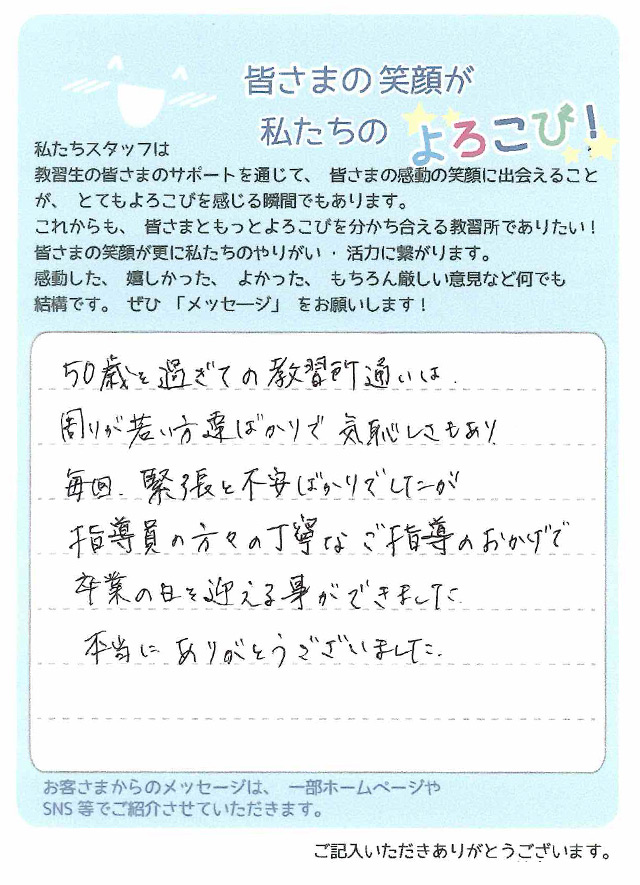 皆さまの笑顔が
私たちの よろこび!
私たちスタッフは
教習生の皆さまのサポートを通じて、 皆さまの感動の笑顔に出会えること
が、 とてもよろこびを感じる瞬間でもあります。
これからも、 皆さまともっとよろこびを分かち合える教習所でありたい!
皆さまの笑顔が更に私たちのやりがい・活力に繋がります。
感動した、 嬉しかった、 よかった、 もちろん厳しい意見など何でも
結構です。 ぜひ 「メッセージ」 をお願いします!
50歳を過ぎての教習所通いは、
周りが若い方達ばかりで 気恥しさもあり
毎回、緊張と不安ばかりでしたが
指導員の方々の丁寧なご指導のおかげで
卒業の日を迎える事ができました。
本当に ありがとうございました。
お客さまからのメッセージは、 一部ホームページや
SNS等でご紹介させていただきます。
ご記入いただきありがとうございます。